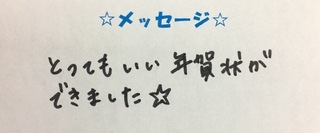 ☆メッセージ☆
とってもいい年賀状が
できました☆